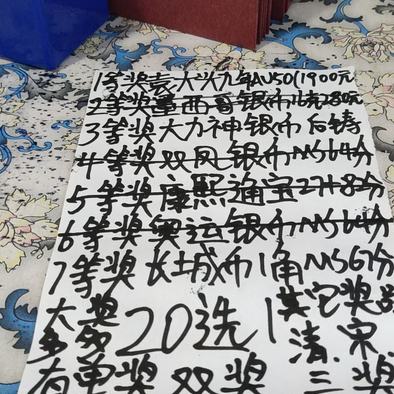 1等奖袁大头九年AU50(1900元
2等奖墨西哥银币1克280元
3等奖大力神银币后铸
4等奖双凤银币MS64分
5等奖康熙通宝27+8分
6等奖奥运银币MS64分
7等奖长城币1角MS67分
大奖20选1其它奖
多多 清.宋
有单奖双奖三奖